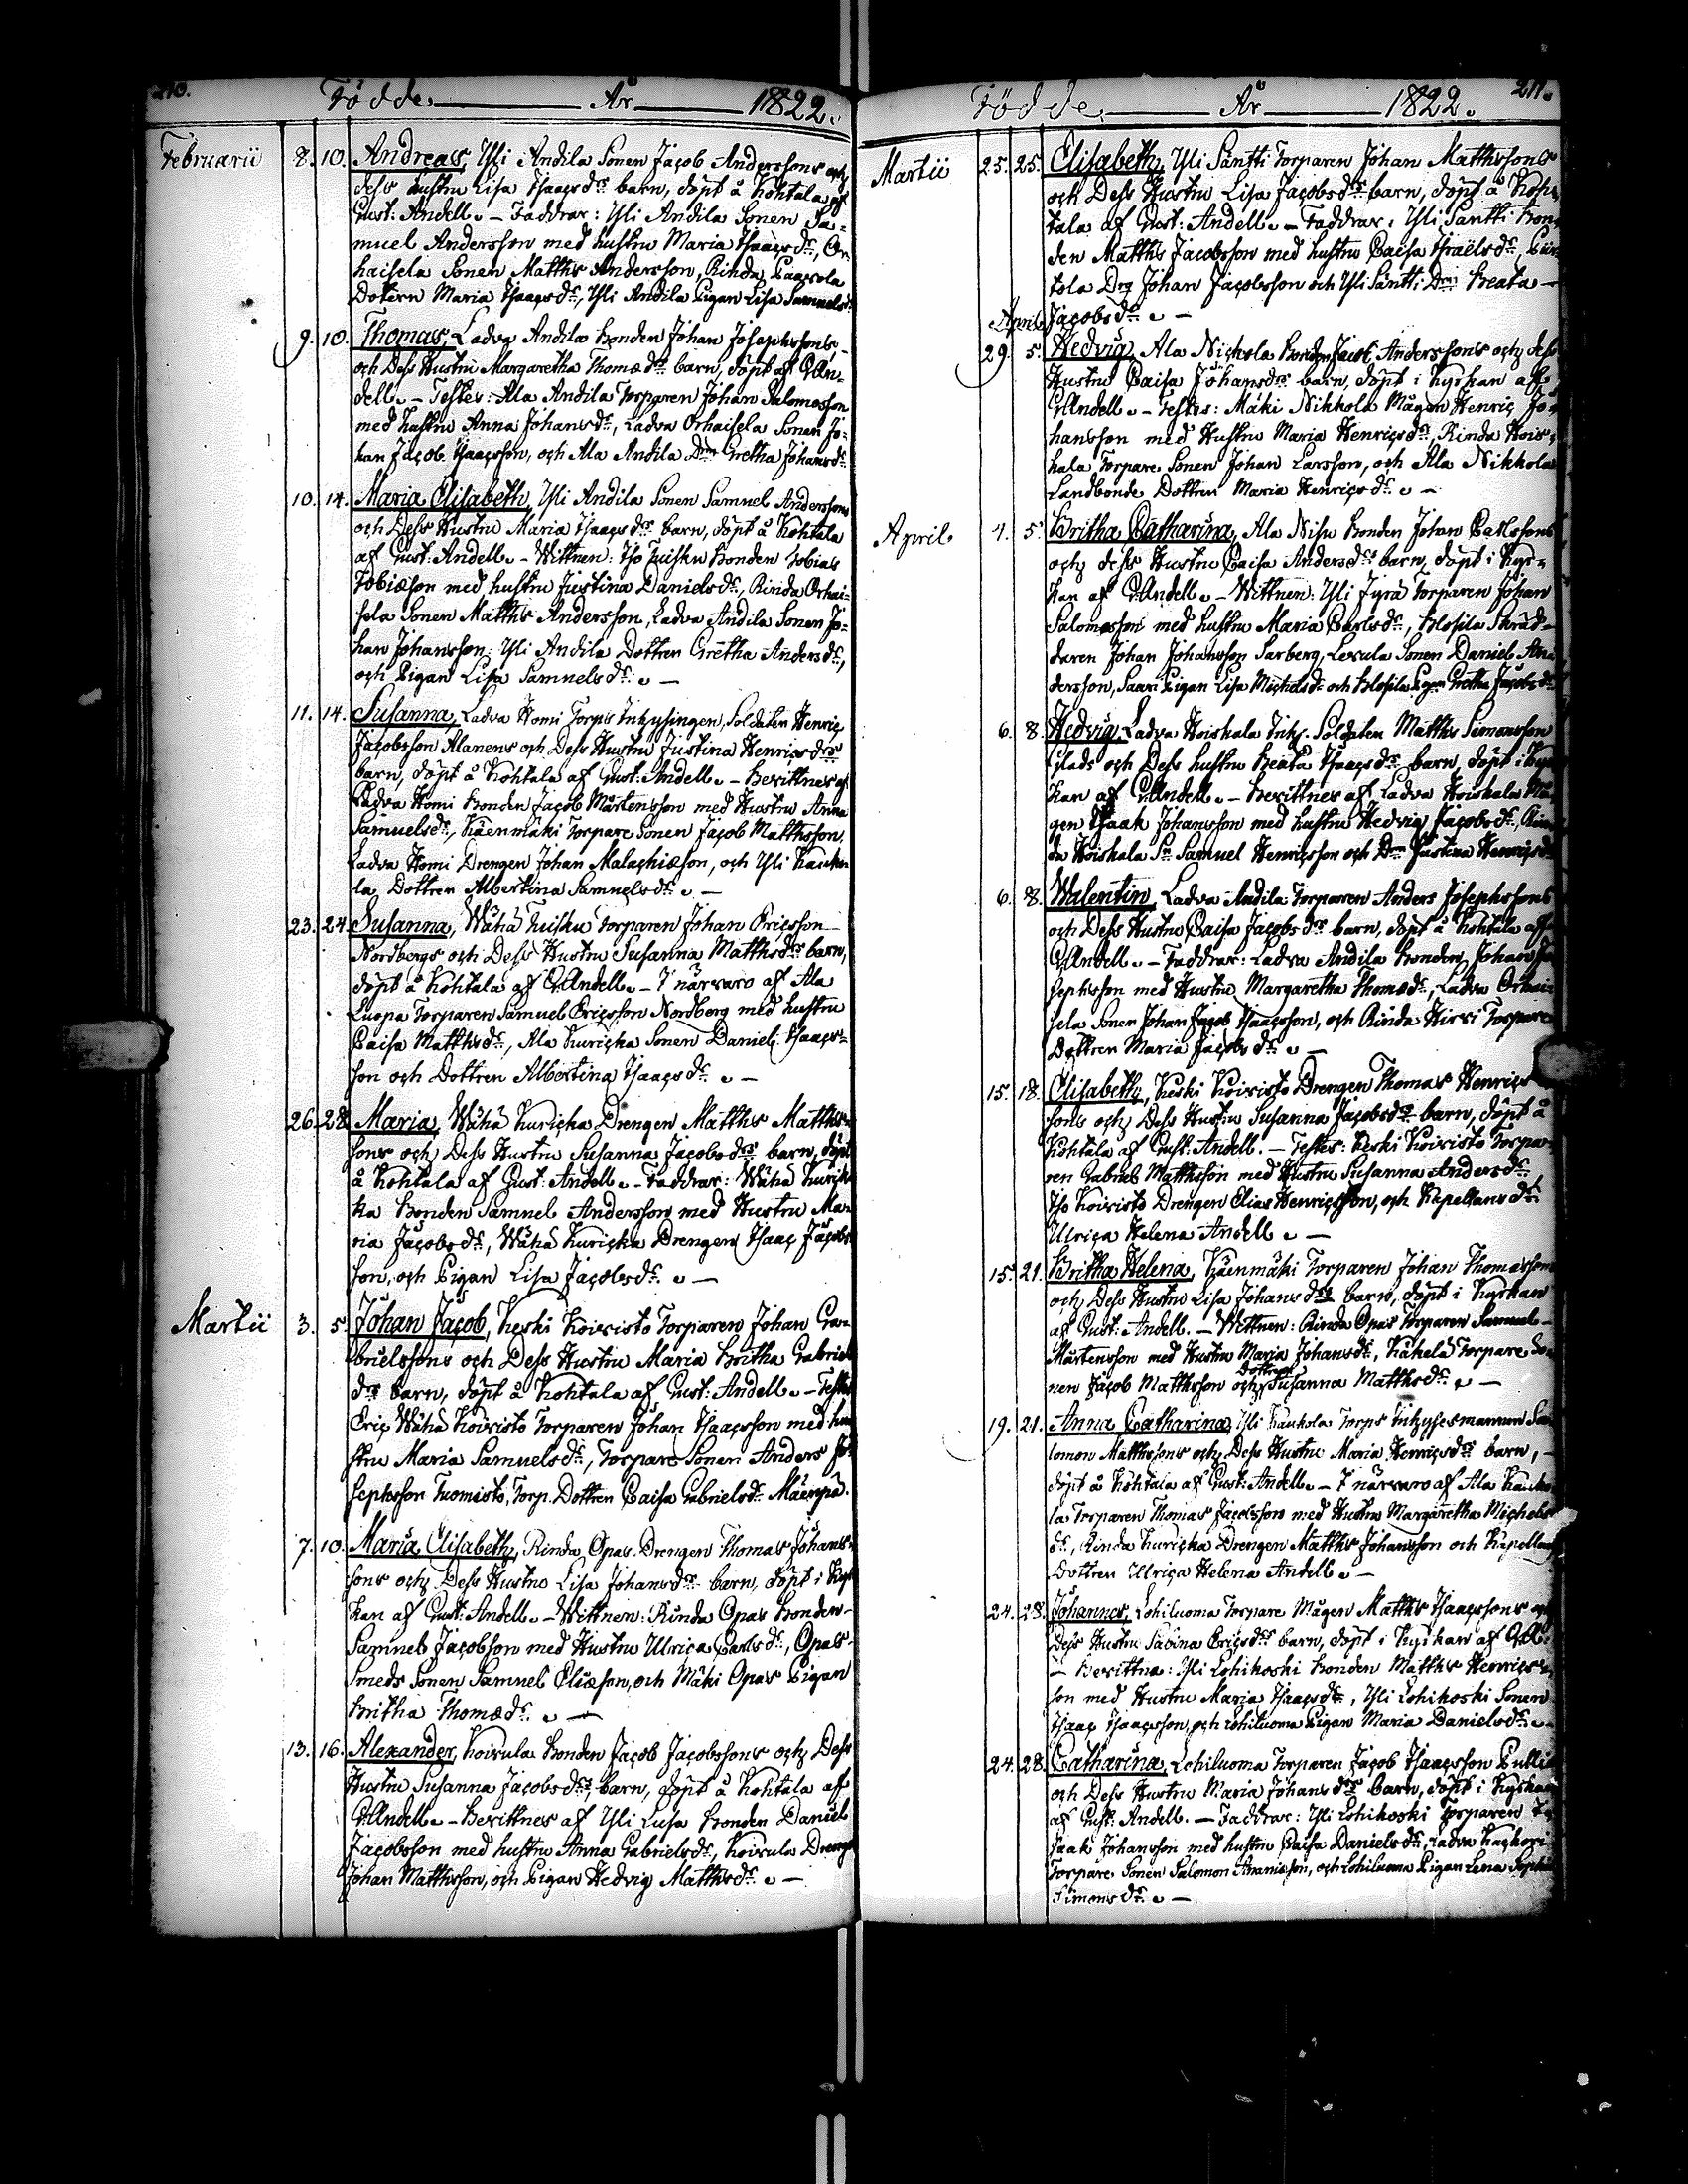 210.
Födde. År 1822.
Februarii 8. 10. Andreas, Yli Andila Sonen Jacob Anderssons och
dess hustru Lisa Isaacsdrs barn, döpt å Kohtala af
Gust: Andell. – Faddrar: Yli Andila Sonen Sa=
muel Andersson med hustru Maria Isaacsdr, Or=
haisela Sonen Matths Andersson, Rinda Paavola
Dotern Maria Isaacsdr, Yli Andila Pigan Lisa Samuelsdr
9. 10. Thomas, Ladva Andila bonden Johan Josephssons
och Dess Hustru Margaretha Thomædrs barn, döpt af G. An=
dell. – Testes: Ala Andila Torparen Johan Salomosson
med hustru Anna Johansdr, Ladva Orhaisela Sonen Jo=
han Jacob Isaacsson, och Ala Andila Dttrn Gretha Johansdr.
10. 14. Maria Elisabeth, Yli Andila Sonen Samuel Anderssons
och Dess Hustru Maria Isaacsdrs barn, döpt å Kohtala
af Gust: Andell. – Wittnen: Iso Tuisku bonden Tobias
Tobiæson med hustru Justina Danielsdr, Rinda Orhai=
sela Sonen Matths Andersson, Ladva Andila Sonen Jo=
han Johansson, Yli Andila Dottren Gretha Andersdr,
och Pigan Lisa Samuelsdr. –
11. 14. Susanna, Ladva Homi Torps Inhysingen, Soldaten Henric
Jacobsson Alanens och Dess Hustru Justina Henricsdrs
barn, döpt å Kohtala af Gust: Andell. – Bevittnes af
Ladva Homi bonden Jacob Mårtensson med Hustru Anna
Samuelsdr, Käenmäki Torpare Sonen Jacob Matthsson,
Ladva Homi Drengen Johan Malachiæson, och Yli Kauko
la Dottren Albertina Samuelsdr. –
23. 24. Susanna, Wähä Tuisku Torparen Johan Ericsson
Nordbergs och Dess Hustru Susanna Matthsdrs barn,
döpt å Kohtala af G. Andell. – I närvaro af Ala
Luopa Torparen Samuel Ericsson Nordberg med hustru
Caisa Matthsdr, Ala Kuricka Sonen Daniel Isaacs=
son och Dottren Albertina Isaacsdr. –
26. 28. Maria, Wähä Kuricka Drengen Matths Matths=
sons och Dess Hustru Susanna Jacobsdrs barn, döpt
å Kohtala af Gust: Andell. – Faddrar: Wähä Kurick
ka Bonden Samuel Andersson med Hustru Ma=
ria Jacobsdr, Wähä Kuricka Drengen Isaac Jacobs
son, och Pigan Lisa Jacobsdr. –
Martii 3. 5. Johan Jacob, Keski Koivisto Torparen Johan Ga=
brielssons och Dess Hustru Maria Britha Gabriels
drs barn, döpt å Kohtala af Gust: Andell. – Testes
Eric Wähä Koivisto Torparen Johan Isaacsson med hu
stru Maria Samuelsdr, Torpare Sonen Anders Jo
sephsson Tuomisto, Torp. Dottren Caisa Gabrielsdr Mäenpä.
7. 10. Maria Elisabeth, Rinda Opas Drengen Thomas Johans=
sons och Dess Hustru Lisa Johansdrs barn, döpt i Kyr
kan af Gust: Andell. – Wittnen: Rinda Opas bonden
Samuel Jacobsson med Hustru Ulrica Carlsdr, Opas
Smeds Sonen Samuel Eliæson, och Mäki Opas Pigan
Britha Thomædr. –
13. 16. Alexander, Koivula bonden Jacob Jacobssons och Dess
Hustru Susanna Jacobsdrs barn, döpt å Kohtala af
G. Andell. – Bevittnes af Yli Lusa bonden Daniel
Jacobsson med hustru Anna Gabrielsdr, Koivula Drengen
Johan Matthsson, och Pigan Hedvig Matthsdr. –
211.
Födde. År 1822.
Martii 25. 25. Elisabeth, Yli Säntti Torparen Johan Matthssons
och Dess Hustru Lisa Jacobsdrs barn, döpt å Koh=
tala af Gust: Andell. – Faddrar: Yli Säntti bon=
den Matths Jacobsson med hustru Caisa Israëlsdr, Pir
tola Drg Johan Jacobsson och Yli Säntti Dttrn Beata
Jacobsdr. –
April
29. 5. Hedvig, Ala Nickola Bonden Jacob Anderssons och dess
Hustru Caisa Johansdrs barn, döpt i Kyrkan af
G. Andell. – Testes: Mäki Nikkola Mågen Henric Jo=
hansson med Hustru Maria Henricsdr, Rinda Hois=
kala Torpare Sonen Johan Larsson, och Ala Nikkola
Landbonde Dottren Maria Henricsdr. –
April. 4. 5. Britha Catharina, Ala Nisu Bonden Johan Carlssons
och dess Hustru Caisa Andersdrs barn, döpt i Kyr=
kan af G. Andell. – Wittnen: Yli Jyrä Torparen Johan
Salomosson med hustru Maria Carlsdr, Blosila Skräd=
daren Johan Johansson Sarberg, Lexula Sonen Daniel An=
dersson, Saari Pigan Lisa Michelsdr och Blosila Pgn Gretha Jacobsdr
6. 8. Hedvig, Ladva Hoiskala Inh. Soldaten Matths Simonsson
Glads och Dess hustru Beata Isaacsdrs barn, döpt i Kyr
kan af G. Andell. – Bevittnes af Ladva Hoiskala Må
gen Isaak Johansson med hustru Hedvig Jacobsdr, Rin
da Hoiskala Sn Samuel Henricsson och Dttrn Justina Henricsdr
6. 8. Walentin, Ladva Andila Torparen Anders Josephssons
och Dess Hustru Caisa Jacobsdrs barn, döpt å Kohtala af
G. Andell. – Faddrar: Ladva Andila bonden Johan Jo
sephsson med Hustru Margaretha Thomædr, Ladva Orhai=
sela Sonen Johan Jacob Isaacsson, och Rinda Hirvi Torpare
Dottren Maria Jacobsdr. –
15. 18. Elisabeth, Keski Koivisto Drengen Thomas Henrics
sons och Dess Hustru Susanna Jacobsdrs barn, döpt å
Kohtala af Gust: Andell. – Testes: Keski Koivisto Torpa=
ren Gabriel Matthsson med Hustru Susanna Andersdr
Iso Koivisto Drengen Elias Henricsson, och Kapellans dtr
Ulrica Helena Andell. –
15. 21. Britha Helena, Käenmäki Torparen Johan Thomassons
och Dess Hustru Lisa Johansdrs barn, döpt i Kyrkan
af Gust: Andell. – Wittnen: Rinda Opas Torparen Samuel
Mårtensson med Hustru Maria Johansdr, Kähelä Torpare So=
nen Jacob Matthsson och Dottren Susanna Matthsdr. –
19. 21. Anna Catharina, Yli Kaukola Torps Inhysesmannen Sa
lomon Matthssons och Dess Hustru Maria Henricsdrs barn,
döpt å Kohtala af Gust: Andell. – I närvaro af Ala Kauko
la Torparen Thomas Jacobsson med Hustru Margaretha Michels
dr, Rinda Kuricka Drengen Matths Johansson och Kapellans
Dottren Ulrica Helena Andell. –
24. 28. Johannes, Lohiluoma Torpare Mågen Matths Isaacssons och
Dess Hustru Sabina Ericsdrs barn, döpt i Kyrkan af G. A.
– Bevittna: Yli Lohikoski bonden Matths Henrics
son med Hustru Maria Isaacsdr, Yli Lohikoski Sonen
Isaac Isaacsson, och Lohiluoma Pigan Maria Danielsdr. –
24. 28. Catharina, Lohiluoma Torparen Jacob Isaacsson Pulli
och Dess Hustru Maria Johansdrs barn, döpt i Kyrkan
af Gust. Andell. – Faddrar: Yli Lohikoski Torparen I
saak Johansson med hustru Caisa Danielsdr, Ladva Kackori
Torpare Sonen Salomon Ananiæson, och Lohiluoma Pigan Lena Sophia
Simonsdr. –